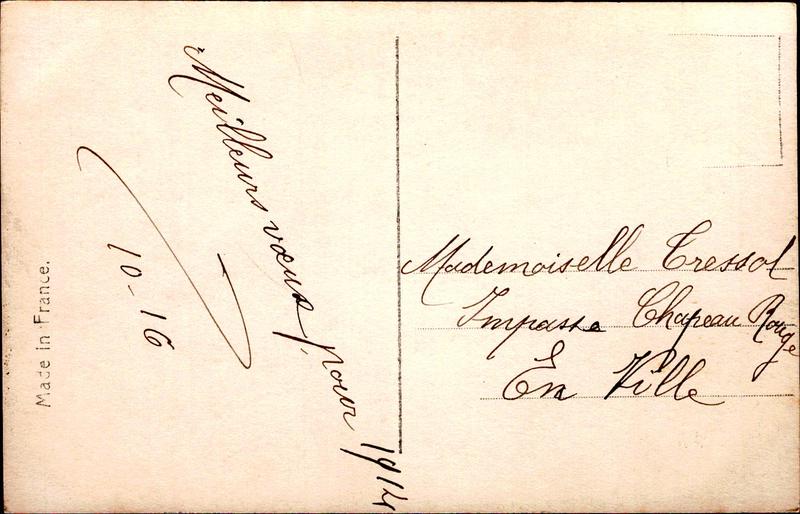 Meilleurs vœux pour 1914
10-16
Made in France.
Mademoiselle Tressol
Impasse Chapeau Rouge
En Ville